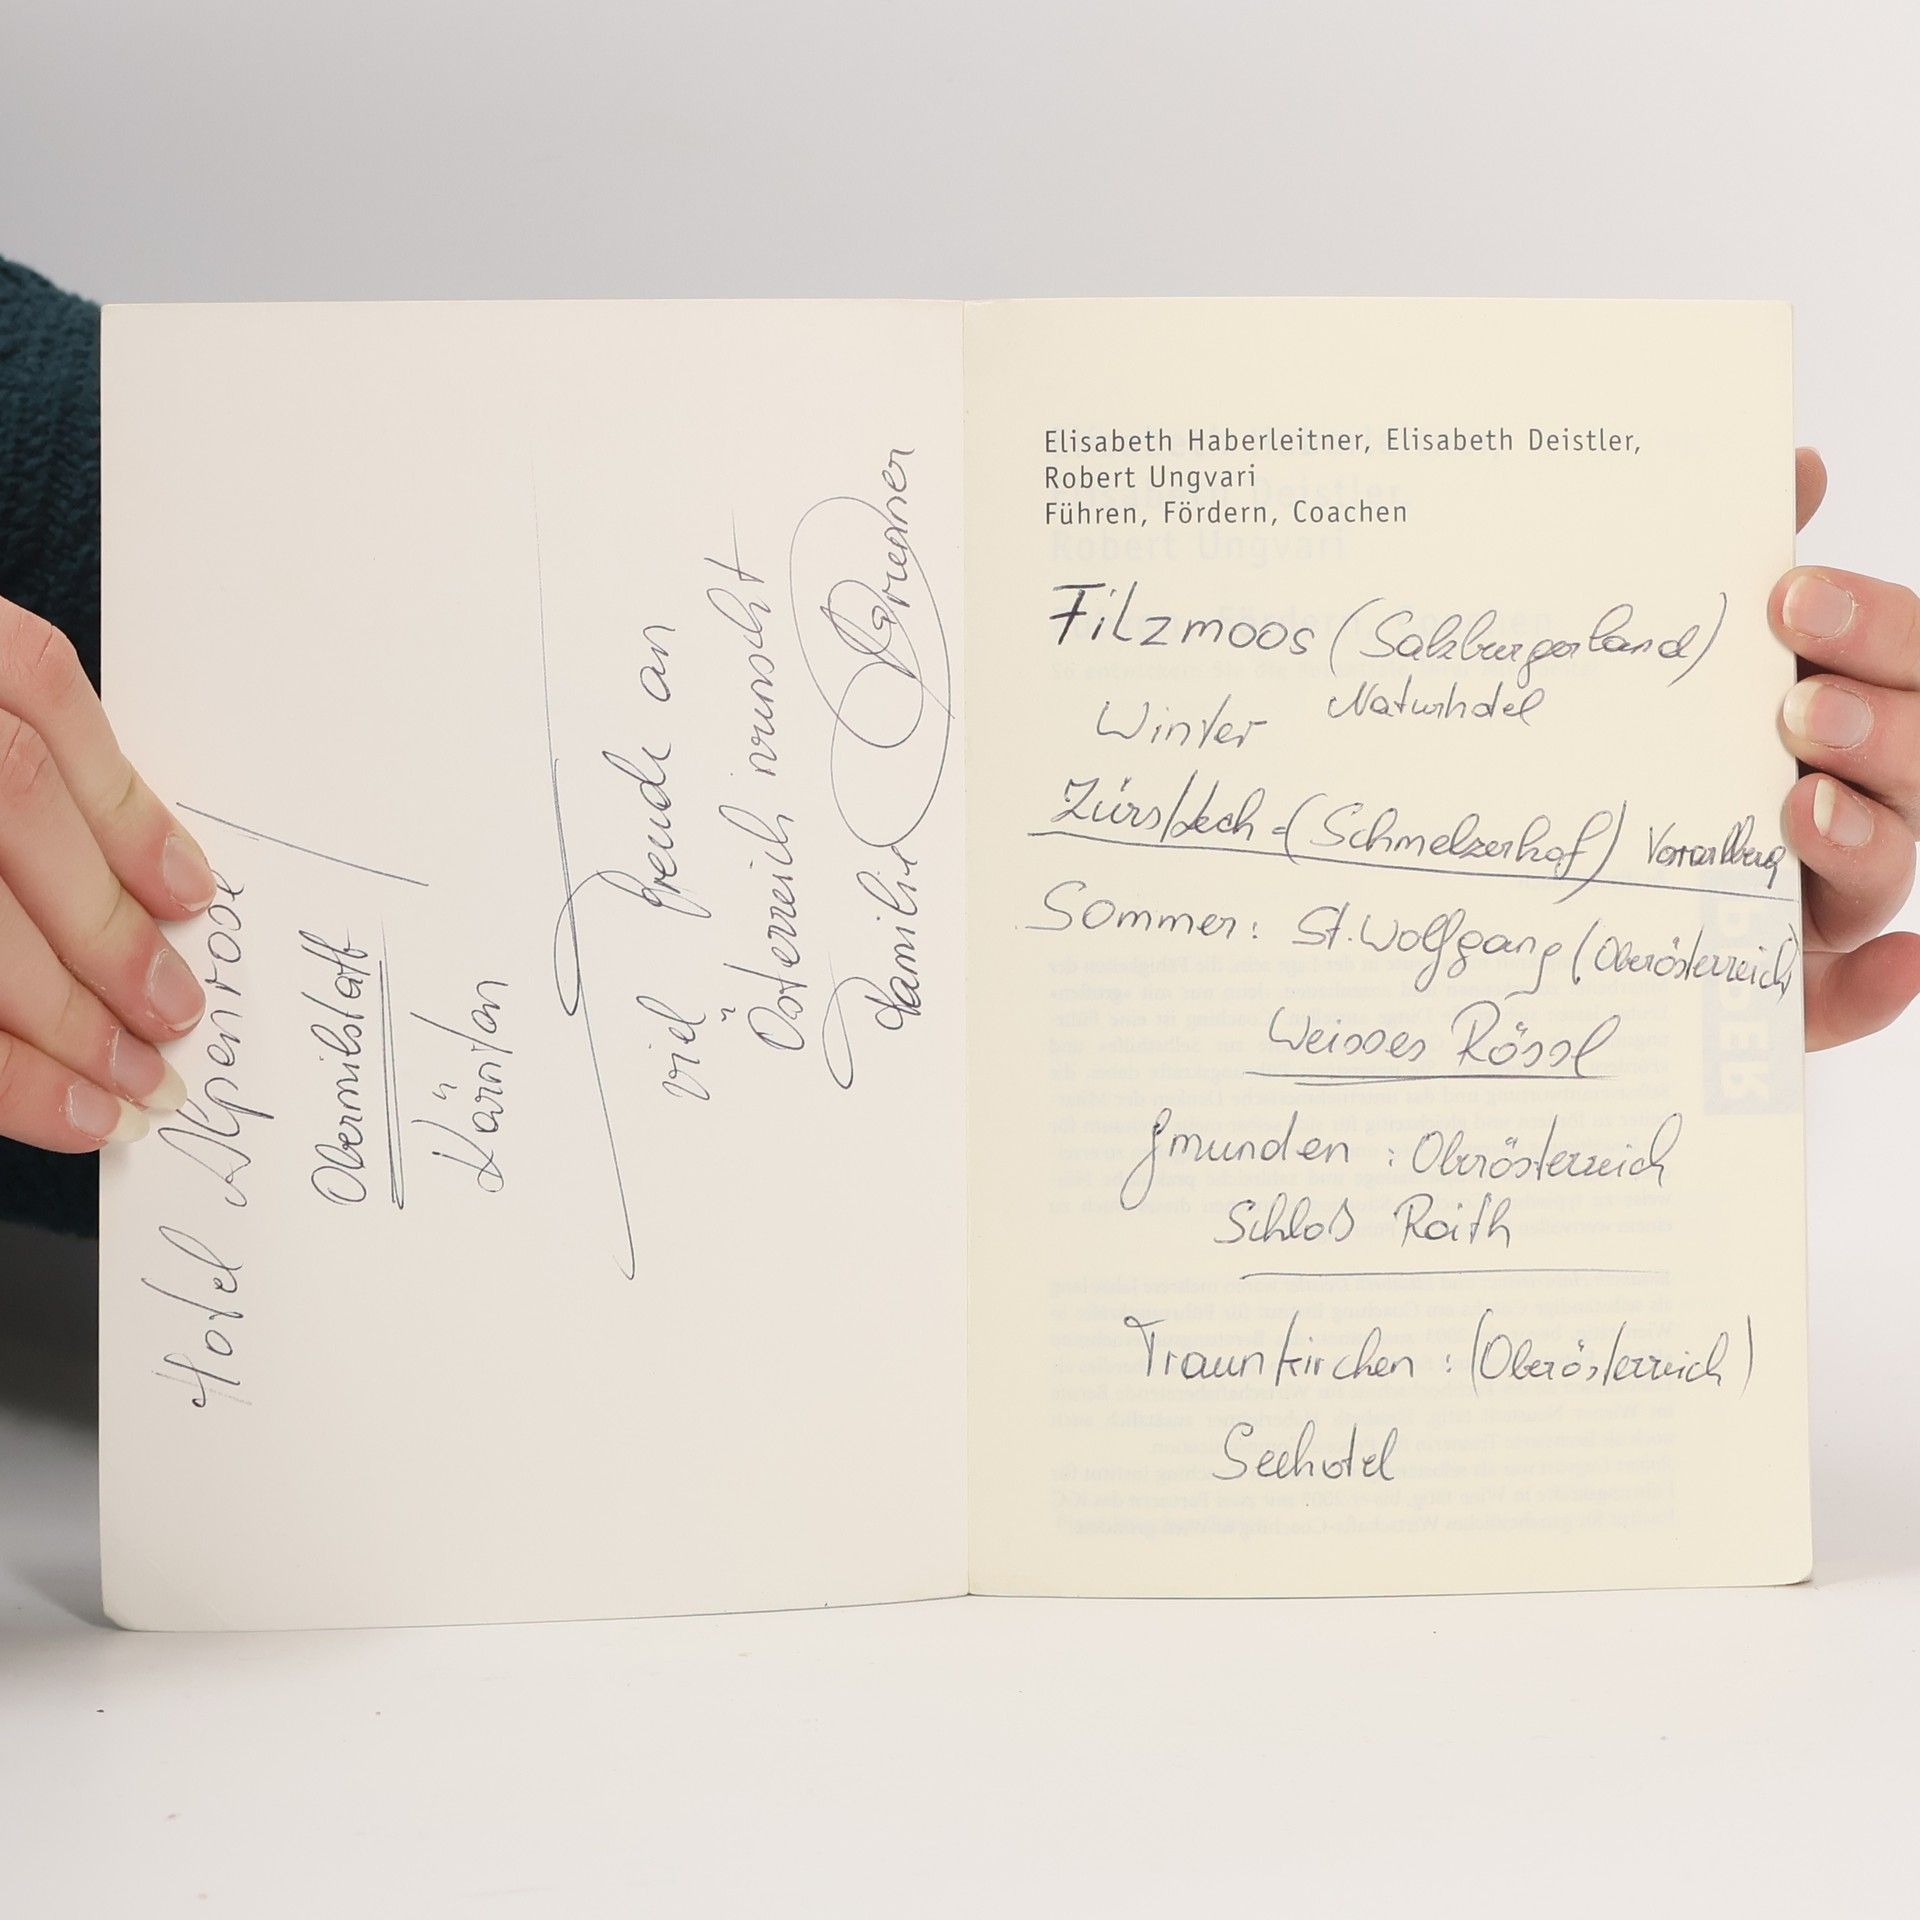 Hotel Alpenrose
Obermilstatt
Kärnten
viel Freude an
Österreich wünscht
Familie
Elisabeth Haberleitner, Elisabeth Deistler,
Robert Ungvari
Führen, Fördern, Coachen
Filzmoos (Salzburgerland)
Winter Naturhotel
Zürs/Lech = (Schmelzerhof) Vorarlberg
Sommer: St. Wolfgang (Oberösterreich)
Weisses Rössl
Gmunden: Oberösterreich
Schloß Roith
Traunkirchen: (Oberösterreich)
Seehotel